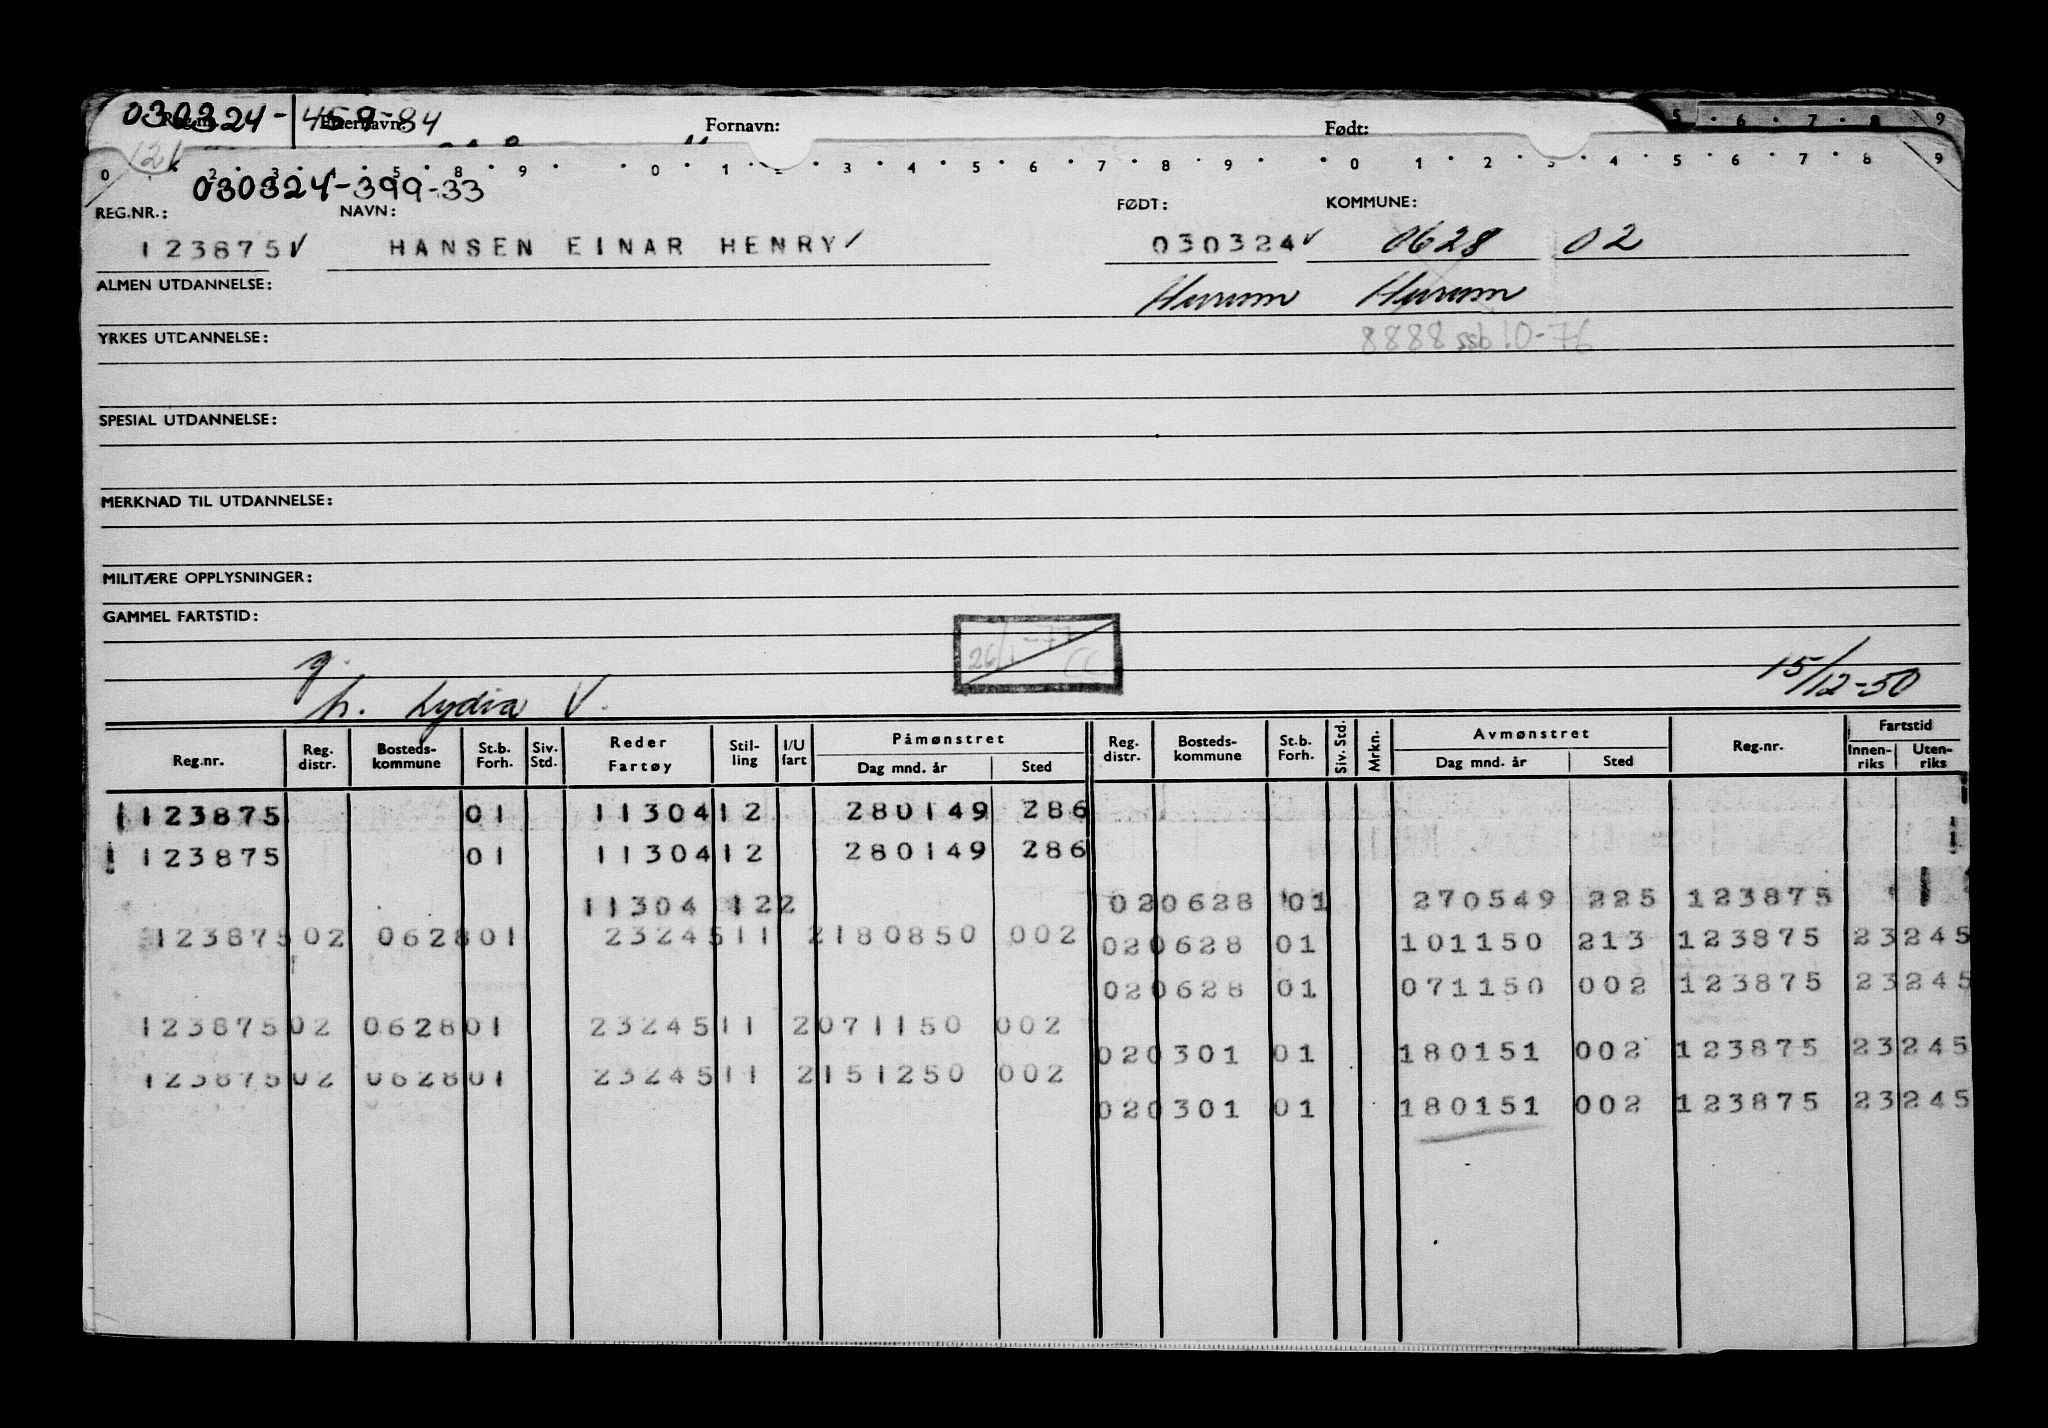 030324- 459-84
Reg.nr. Etternavn: Fornavn: Født:
5 · 6 · 7 · 8 · 9
0 2 3 5 8 9 0 1 2 3 4 5 6 7 8 9 0 1 2 3 4 5 6 7 8 9
030324-399-33
REG.NR.: NAVN: FØDT: KOMMUNE:
123875✓ HANSEN EINAR HENRY✓ 030324✓ 0628 02
ALMEN UTDANNELSE: Hurum Hurum
YRKES UTDANNELSE: 8888 ssb 10-76
SPESIAL UTDANNELSE:
MERKNAD TIL UTDANNELSE:
MILITÆRE OPPLYSNINGER:
GAMMEL FARTSTID:
g. 15/12-50
h. Lydia V.
Reg.nr. Reg. distr. Bosteds- kommune St.b. Forh. Siv. Std. Reder Fartøy Stil- ling I/U fart Påmønstret Dag mnd. år Sted Reg. distr. Bosteds- kommune St.b. Forh. Siv. Std. Mrkn. Avmønstret Dag mnd. år Sted Reg.nr. Fartstid Innen- riks Uten- riks
123875 01 11304 12 280149 286
123875 01 11304 12 280149 286
11304 122 02 0628 01 270549 225 123875
123875 02 0628 01 23245 11 2 180850 002 02 0628 01 101150 213 123875 23245
02 0628 01 071150 002 123875 23245
123875 02 0628 01 23245 11 2 071150 002
02 0301 01 180151 002 123875 23245
123875 02 0628 01 23245 11 2 151250 002
02 0301 01 180151 002 123875 23245